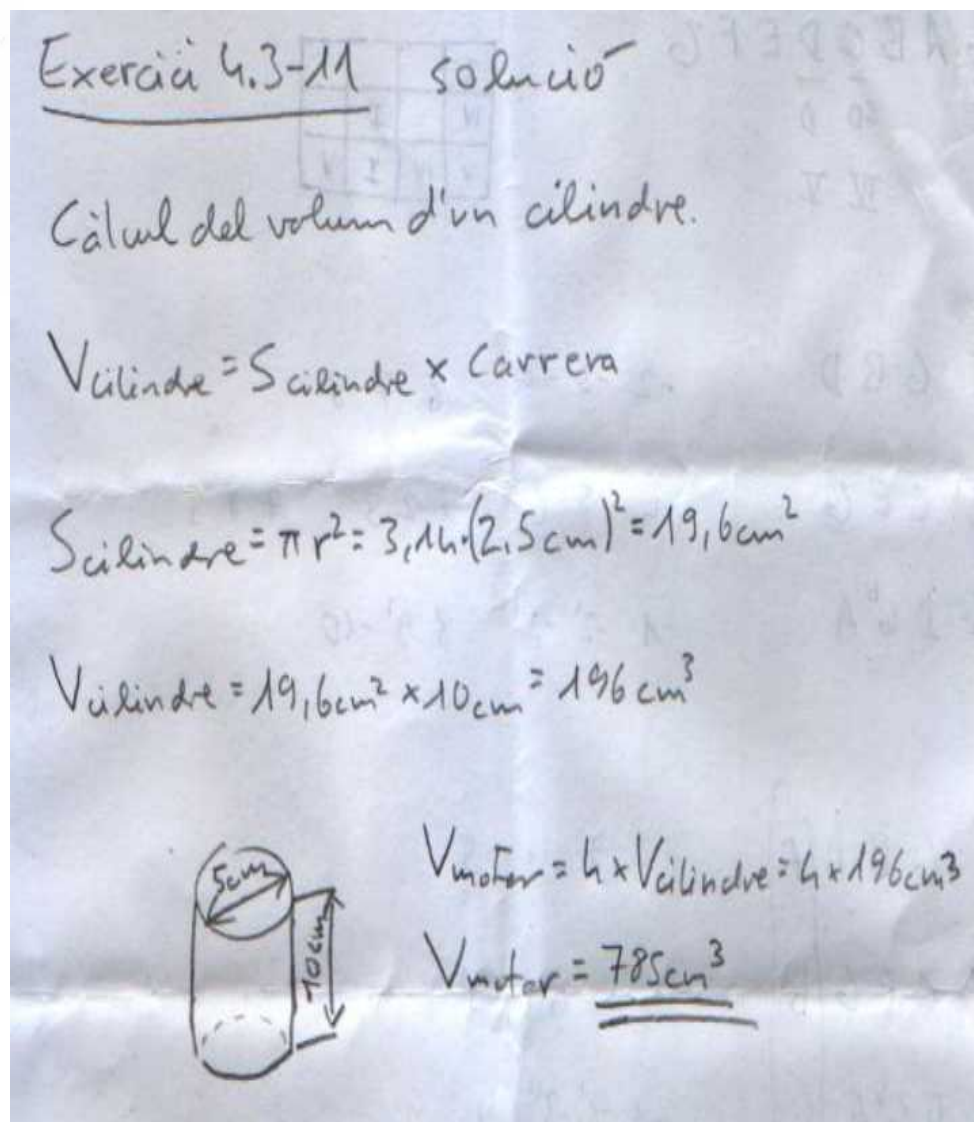 Exercici 4.3-11 solució
Càlcul del volum d'un cilindre.
Vcilindre = Scilindre x Carrera
Scilindre = π r² = 3,14·(2,5cm)² = 19,6cm²
Vcilindre = 19,6cm² x 10cm = 196 cm³
5cm
10cm
Vmotor = 4 x Vcilindre = 4 x 196cm³
Vmotor = 785cm³